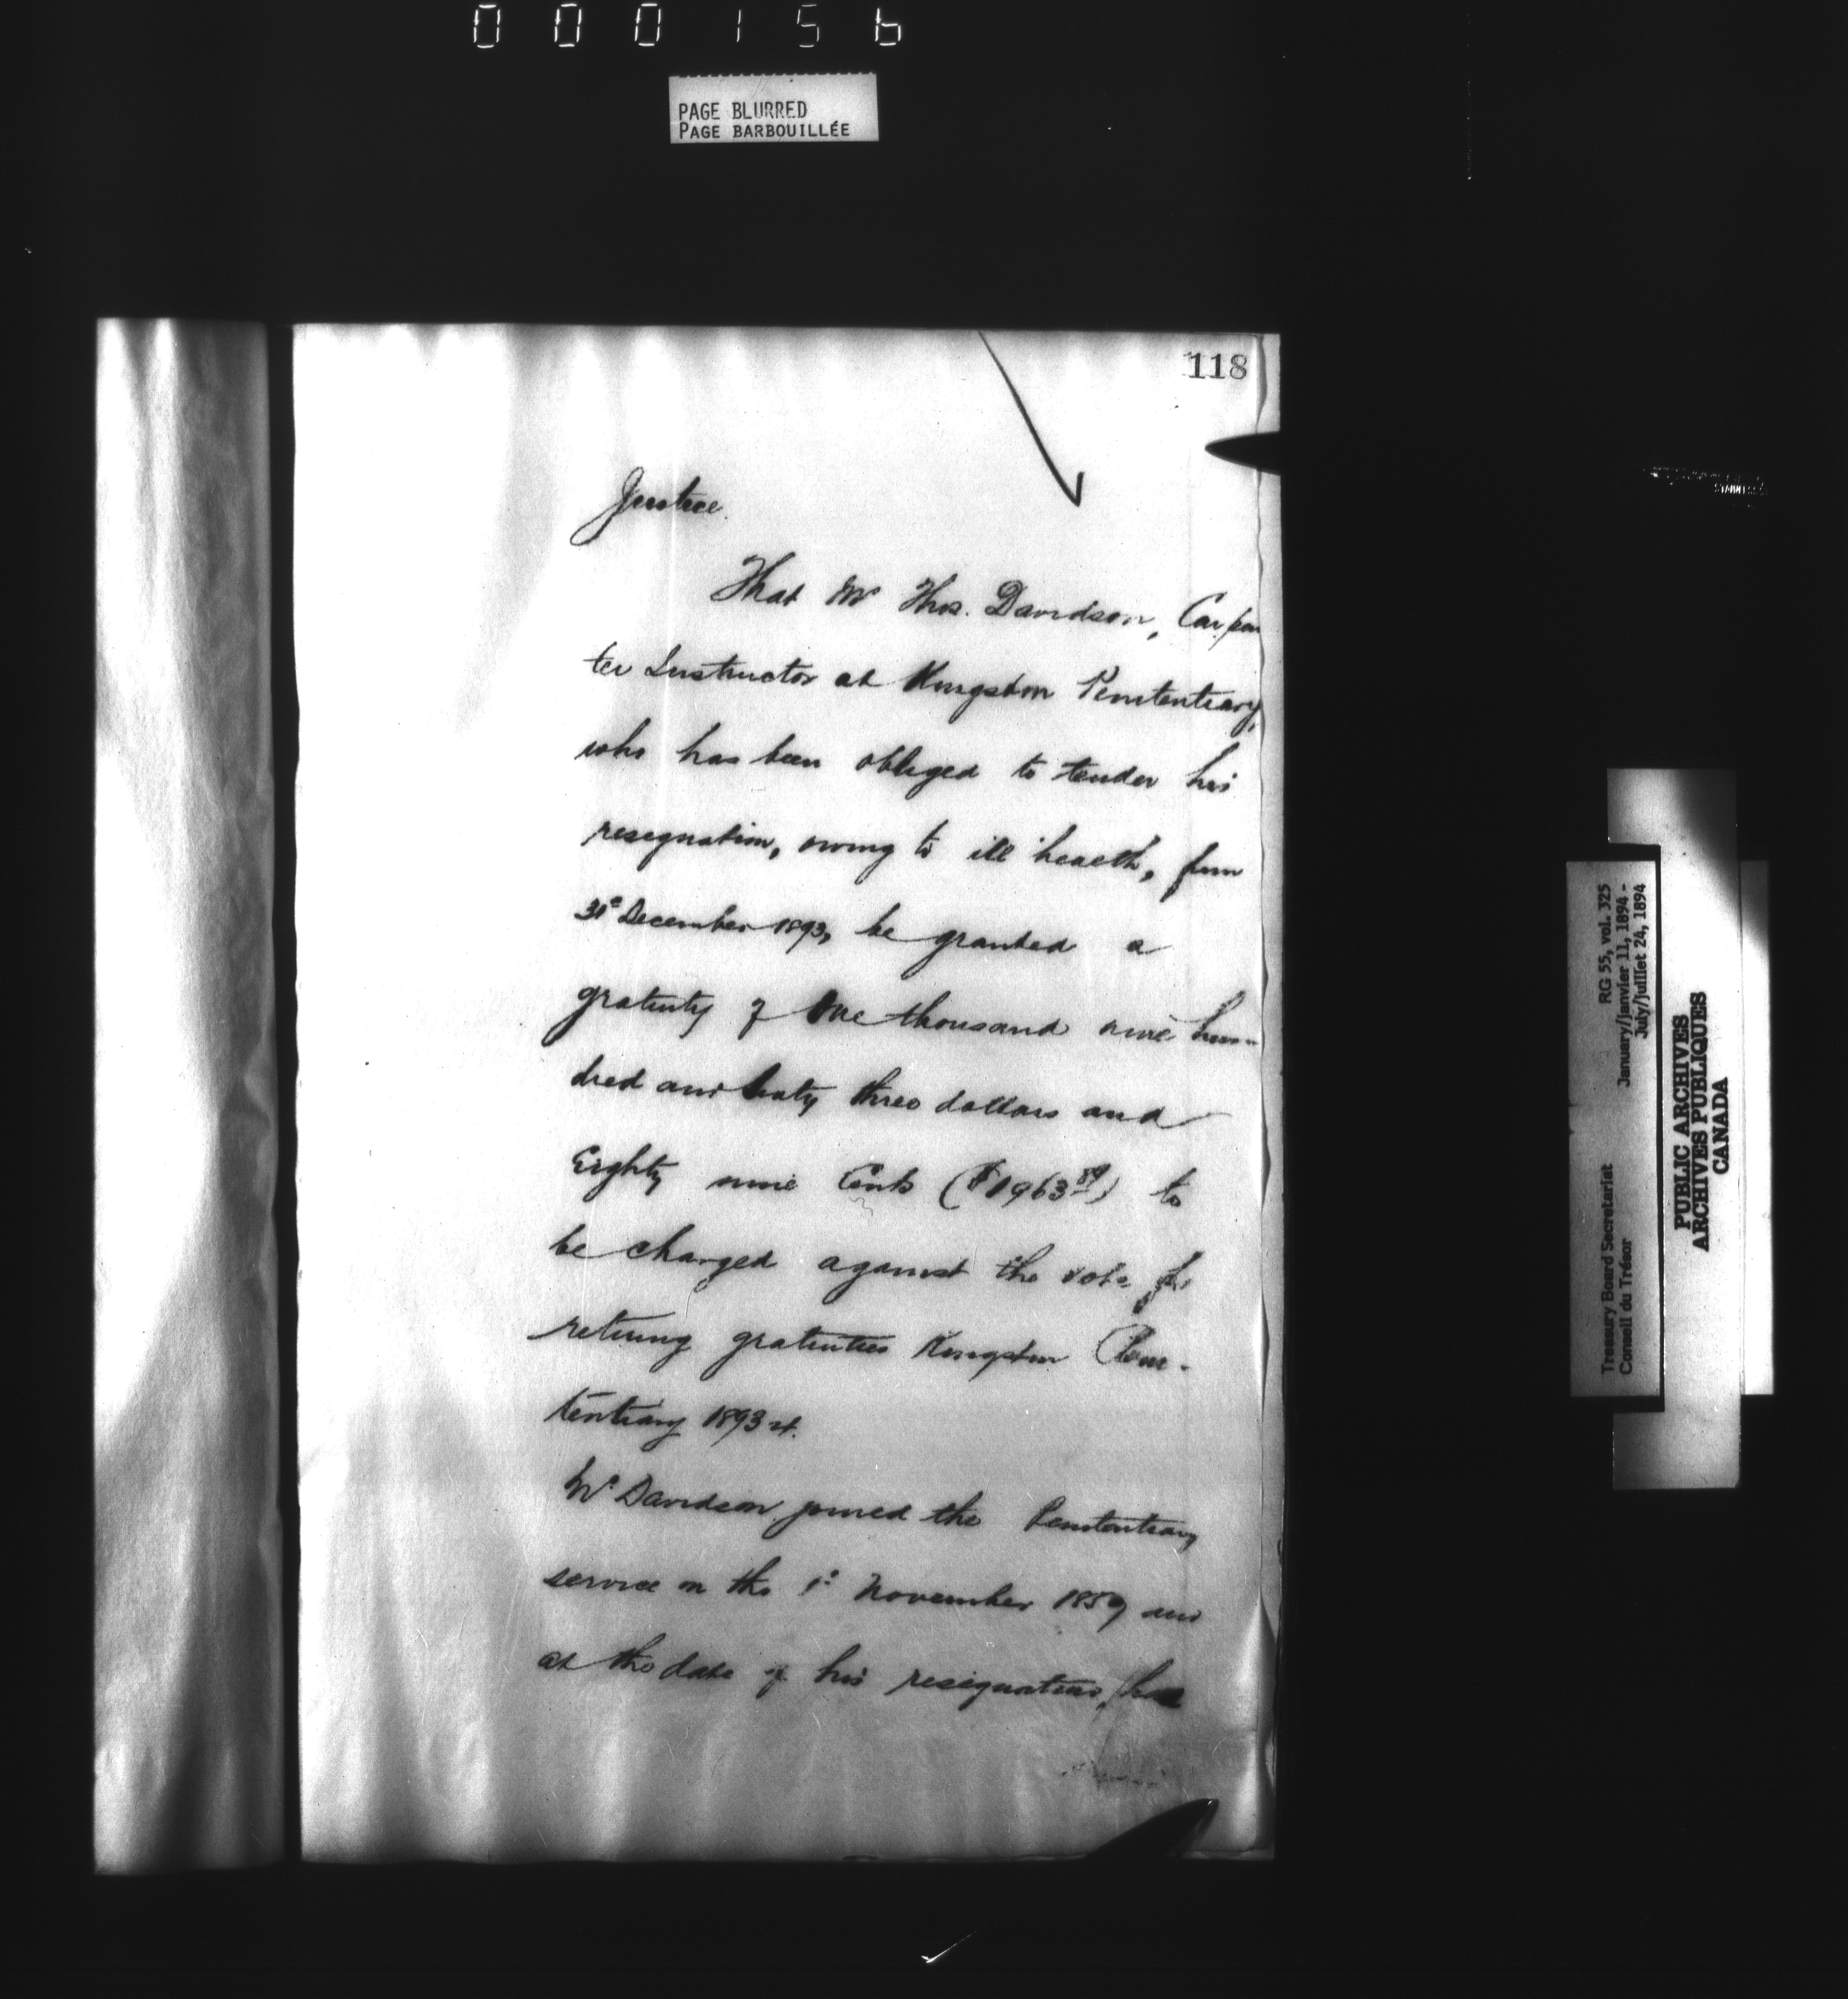 000156
PAGE BLURRED
PAGE BARBOUILLÉE
118
Justice.
That Mr Thos. Davidson, Carpen
ter Instructor at Kingston Penitentiary,
who has been obliged to tender his
resignation, owing to ill health, from
31st December 1893, be granted a
gratuity of One thousand nine hun-
dred and sixty three dollars and
Eighty nine Cents ($1963.89) to
be charged against the vote for
retiring gratuities Kingston Peni-
tentiary 1893-4.
Mr Davidson joined the Penitentiary
service on the 1st November 1859 and
at the date of his resignation, he
Treasury Board Secretariat RG 55, vol. 325
Conseil du Trésor January/janvier 11, 1894 -
July/juillet 24, 1894
PUBLIC ARCHIVES
ARCHIVES PUBLIQUES
CANADA